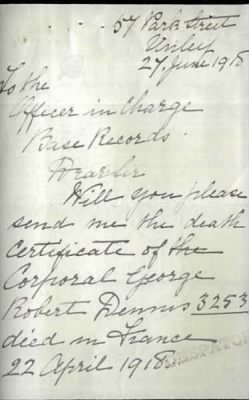 57 Park Street
Unley
27 June 1918
To the
Officer in Charge
Base Records.
Dear Sir
Will you please
send me the death
certificate of the
Corporal George
Robert Dennis 3253
died in France
22 April 1918
DESPATCH